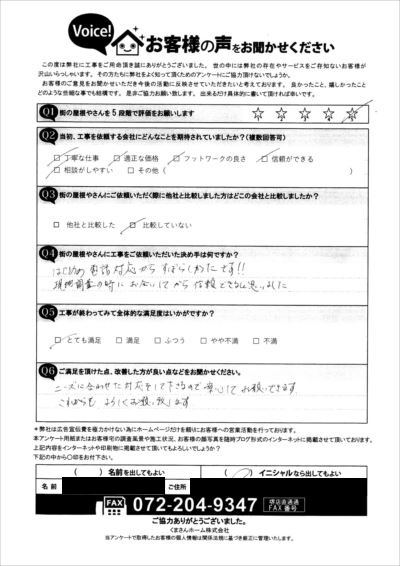 Voice!
お客様の声をお聞かせください
この度は弊社に工事をご用命頂き誠にありがとうございました。世の中には弊社の存在やサービスをご存知ないお客様が
沢山いらっしゃいます。その方たちに弊社をよく知って頂くためのアンケートにご協力頂けないでしょうか。
お客様のご意見をお聞かせいただき今後の活動に反映させていただきたいと考えております。良かったこと、嬉しかったこと
どのような些細な事でも結構です。是非ご協力お願い致します。出来るだけ具体的に書いて頂ければ幸いです。
Q1 街の屋根やさんを5段階で評価をお願いします ☆ ☆ ☆ ☆ ☆
Q2 当初、工事を依頼する会社にどんなことを期待されていましたか？(複数回答可)
□ 丁寧な仕事 □ 適正な価格 □ フットワークの良さ □ 信頼ができる
□ 相談がしやすい □ その他 ( )
Q3 街の屋根やさんにご依頼いただく際に他社と比較しました方はどこの会社と比較しましたか？
□ 他社と比較した □ 比較していない
Q4 街の屋根やさんに工事をご依頼いただいた決め手は何ですか？
はじめの電話対応からすばらしかったです!!
現場調査の時にお会いしてから信頼できると思いました
Q5 工事が終わってみて全体的な満足度はいかがですか？
□ とても満足 □ 満足 □ ふつう □ やや不満 □ 不満
Q6 ご満足を頂けた点、改善した方が良い点などをお聞かせください。
ニーズに合わせた対応をして下さるので安心してお願いできます
これからもよろしくお願い致します
＊弊社は広告宣伝費を極力かけない為にホームページだけを頼りにお客様への営業活動を行っております。
本アンケート用紙またはお客様宅の調査風景や施工状況、お客様の顔写真を随時ブログ形式のインターネットに掲載させて頂いております。
上記内容をインターネットや印刷物に掲載させて頂いてもよろしいでしょうか？
下記の中から〇印をお付下さい。
( ) 名前を出してもよい ( ) イニシャルなら出してもよい
名前 ご住所
FAX 072-204-9347 堺店直通
FAX番号
ご協力ありがとうございました。
くまさんホーム株式会社
当アンケートで取得したお客様の個人情報は関係法規に基づき厳正に管理いたします。